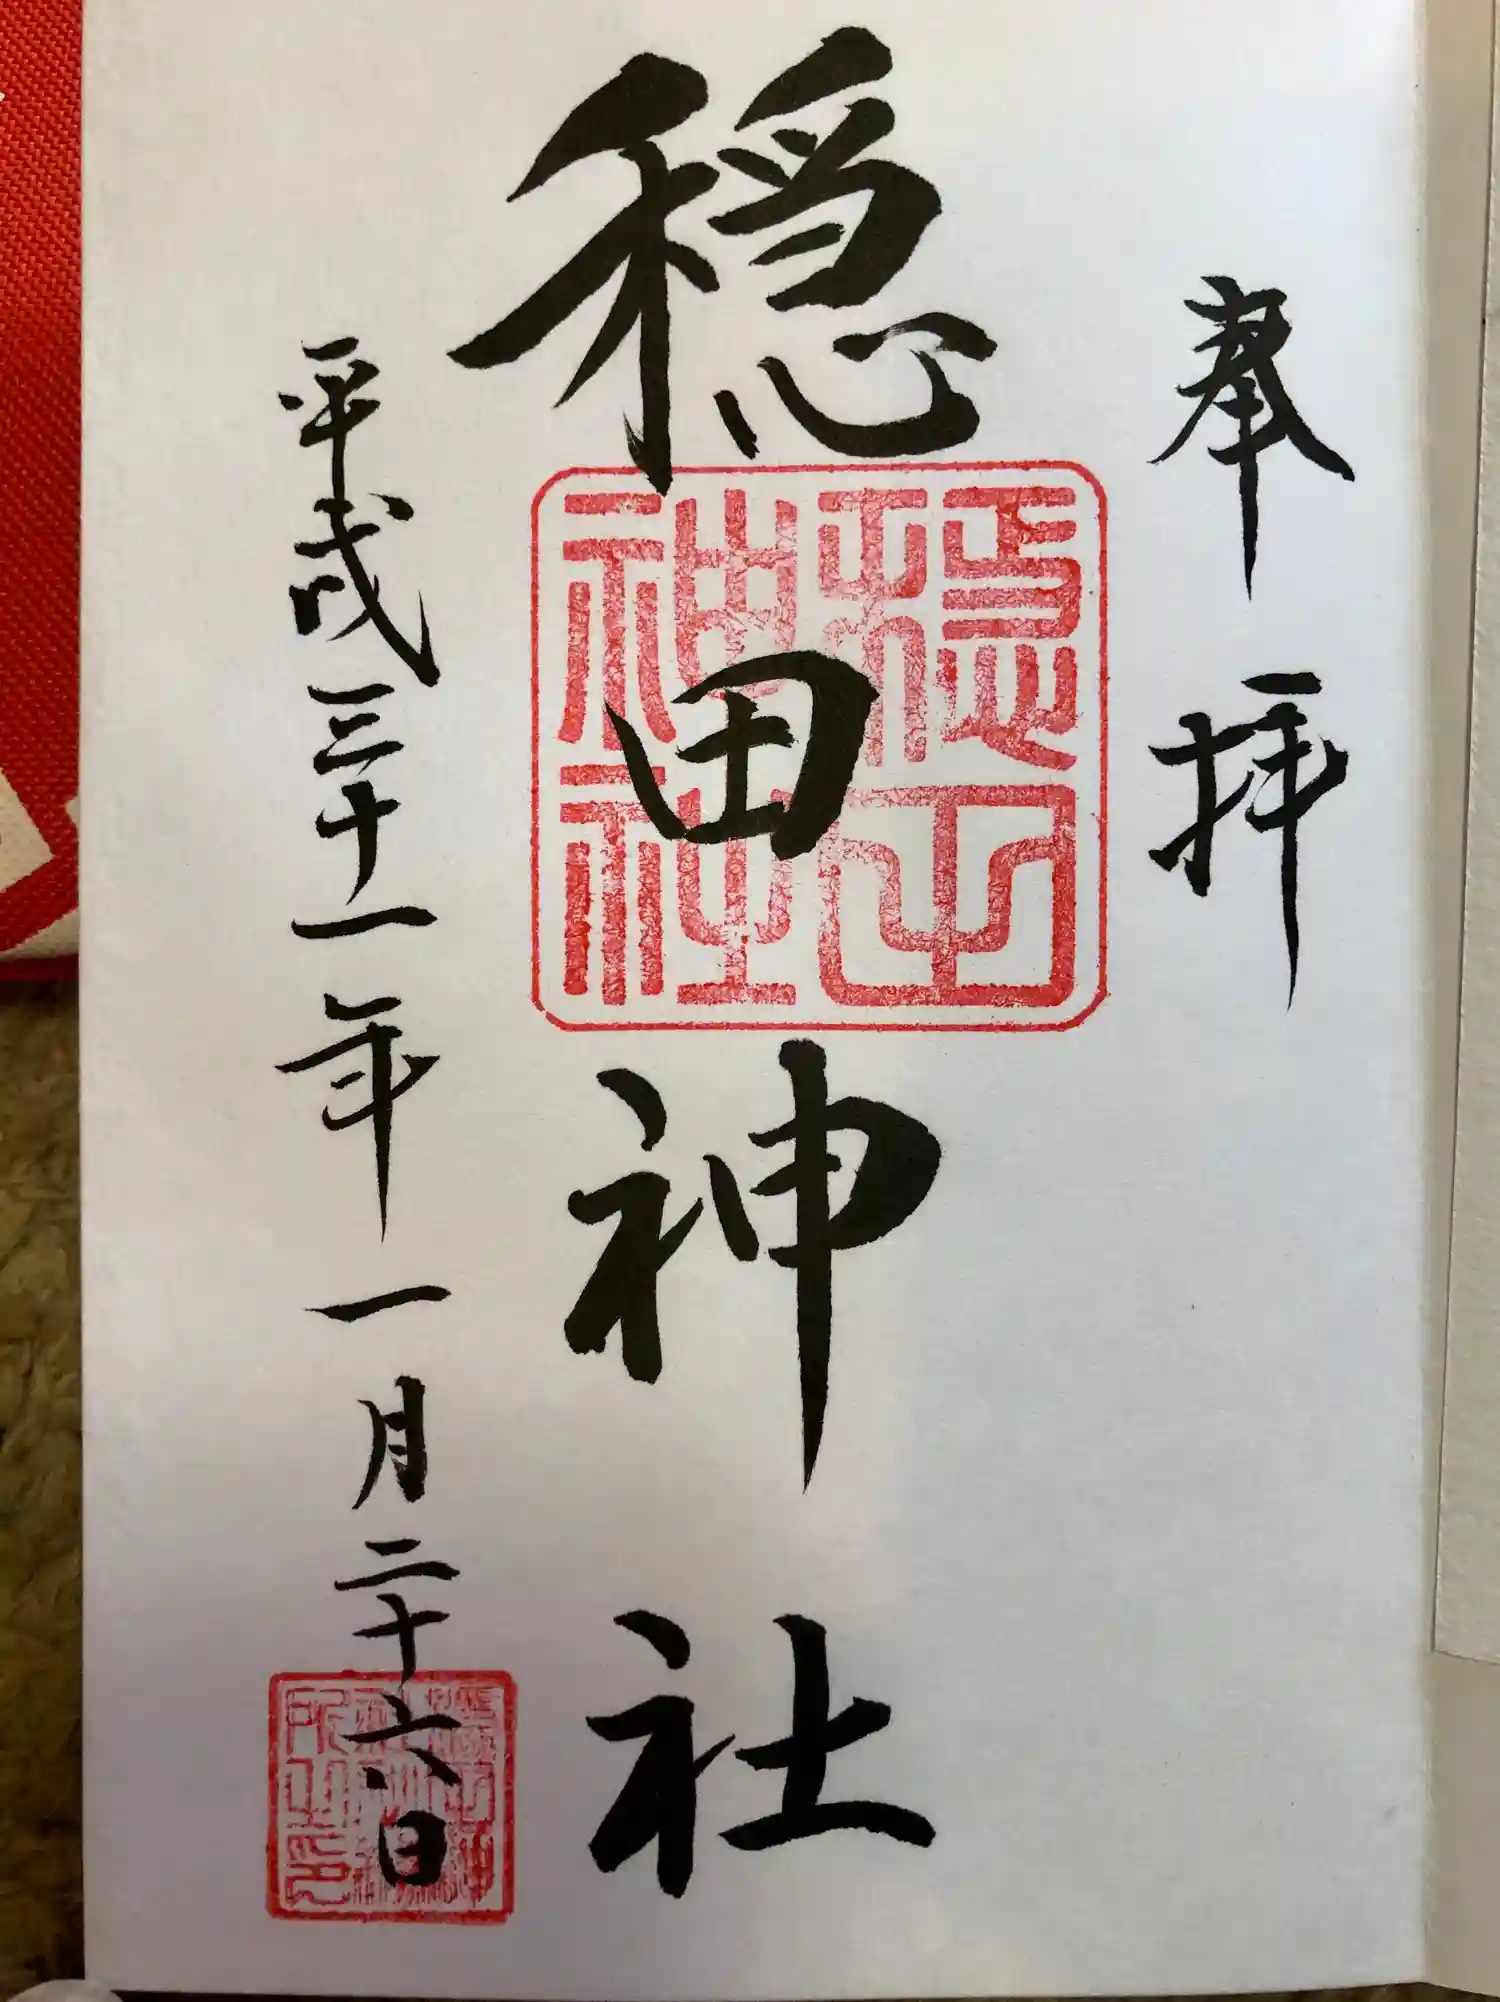 奉拝
穏田神社
穏田神社
平成三十一年一月二十六日